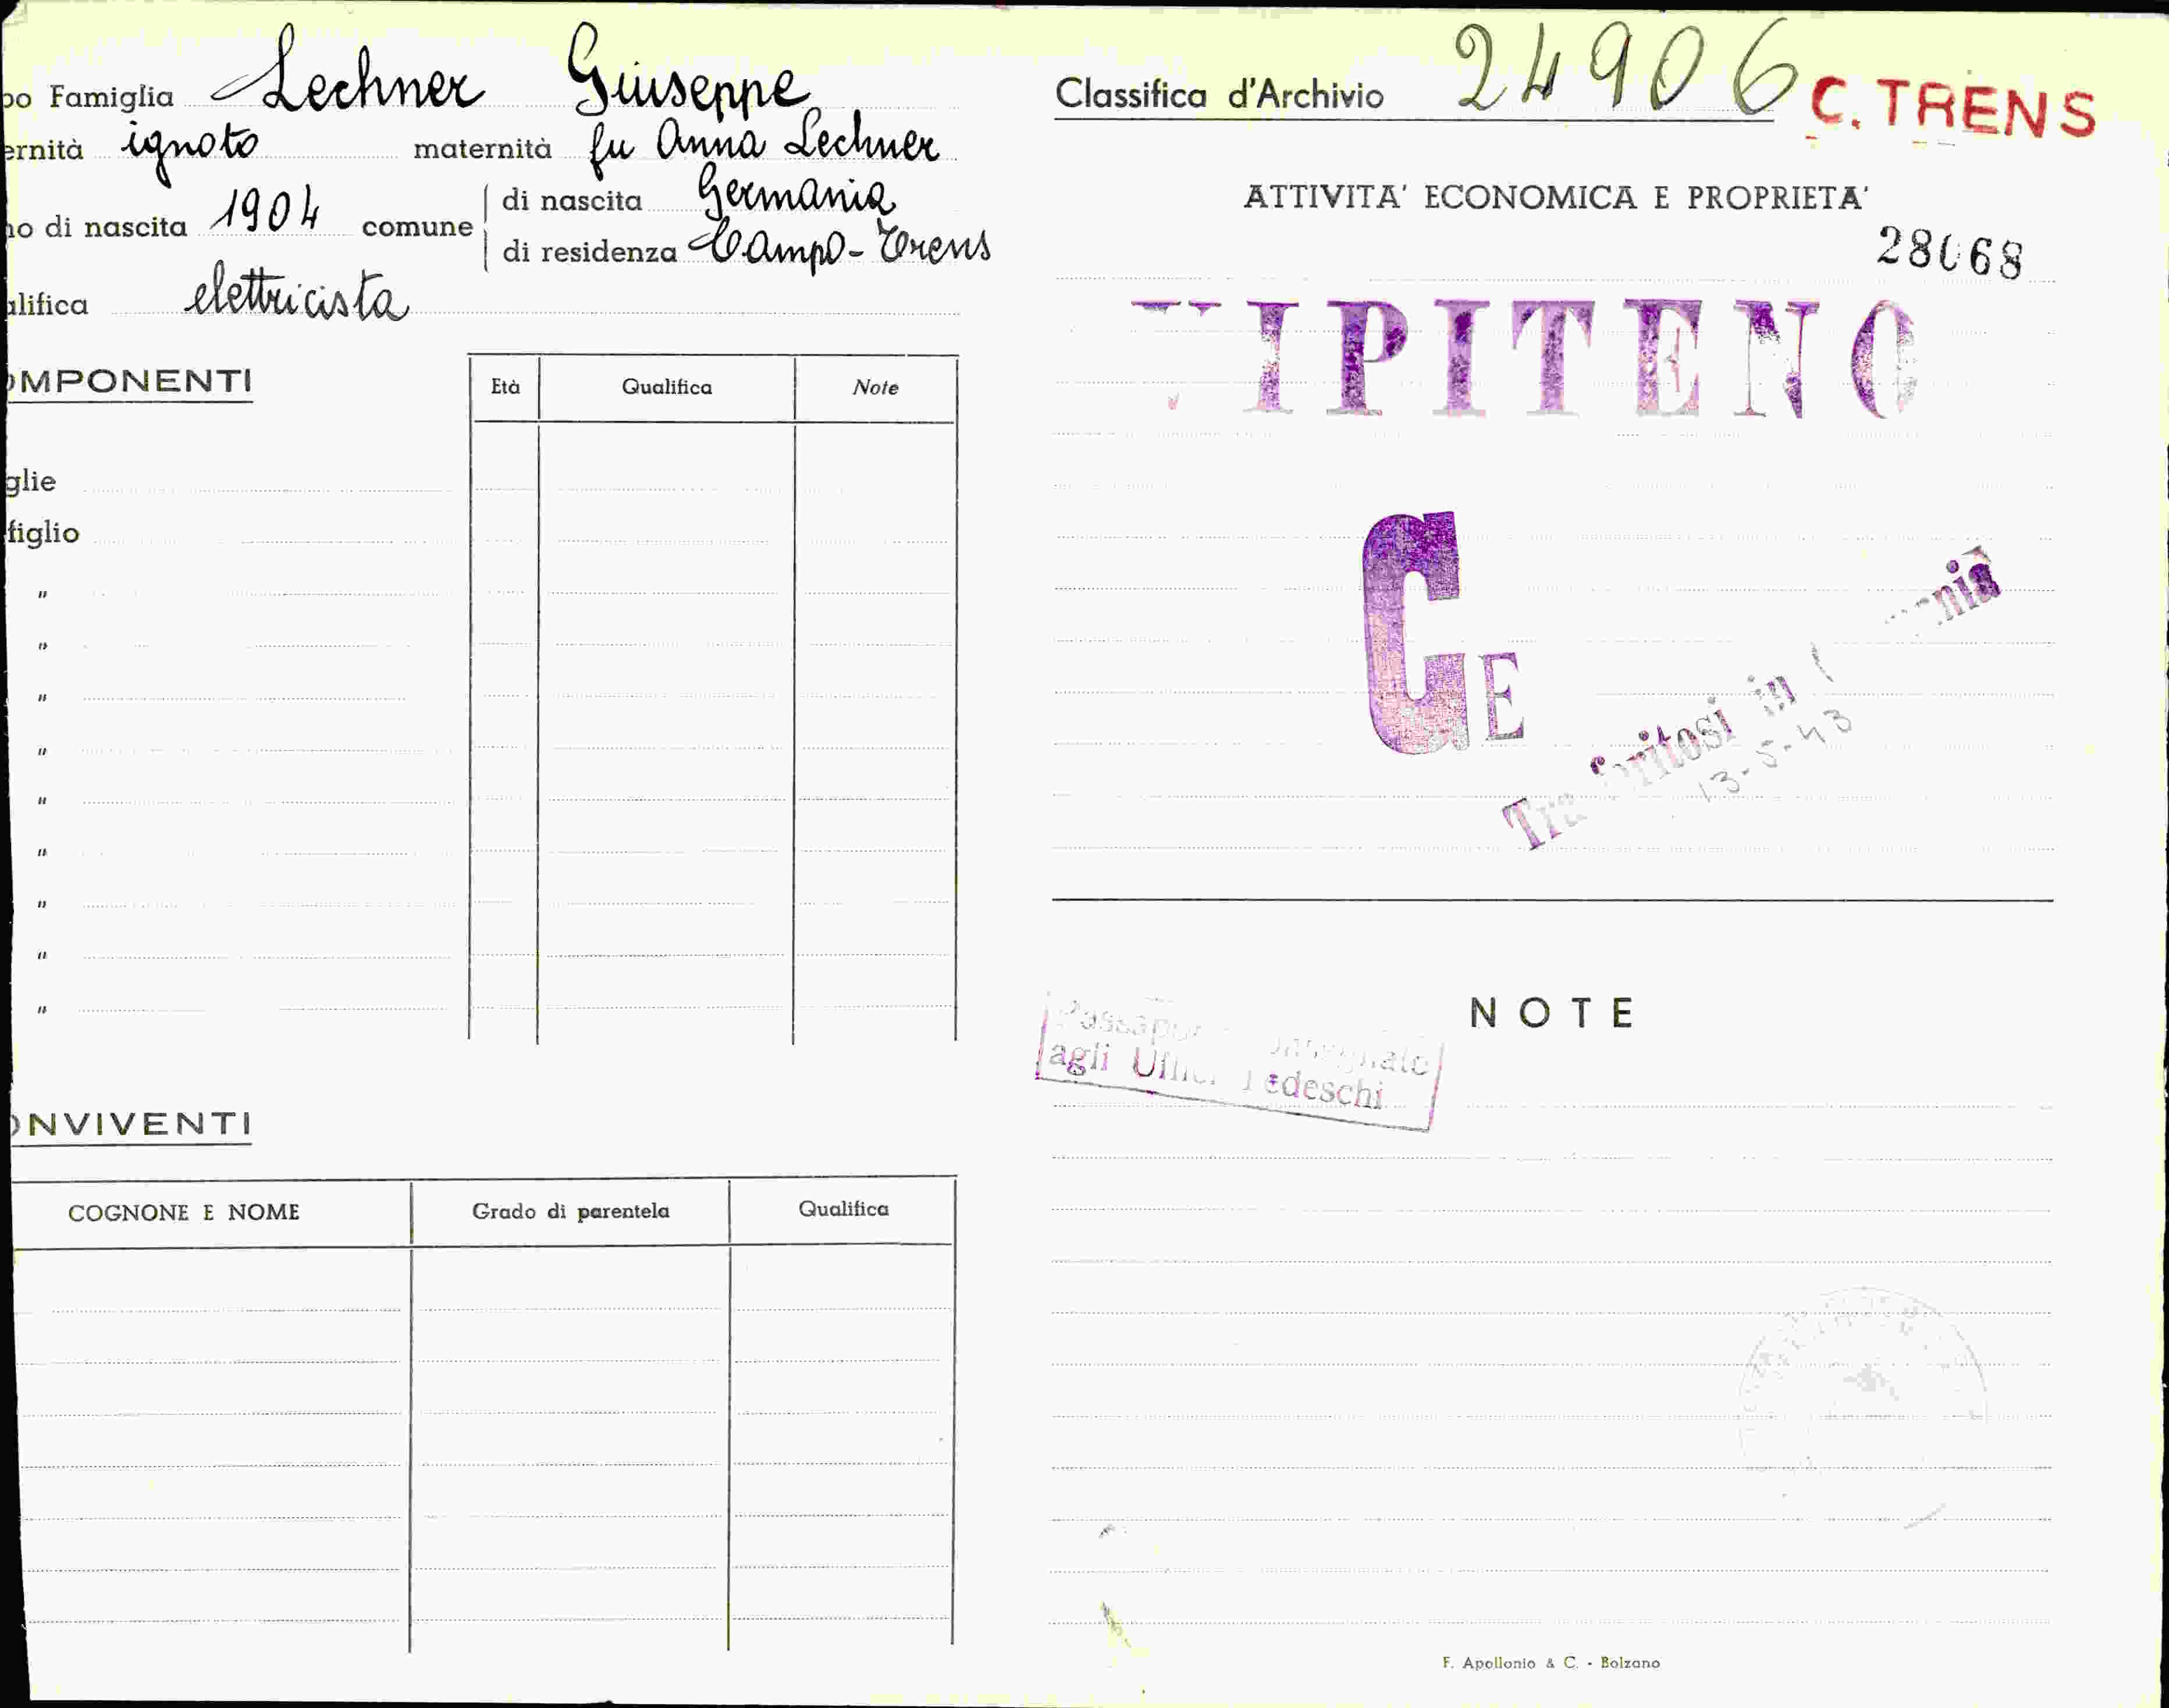 po Famiglia Lechner Giuseppe
ernità ignoto maternità fu Anna Lechner
no di nascita 1904 comune di nascita Germania
di residenza Campo-Trens
alifica elettricista
OMPONENTI
Età Qualifica Note
glie
figlio
"
"
"
"
"
"
"
"
"
ONVIVENTI
COGNONE E NOME Grado di parentela Qualifica
Classifica d'Archivio 24906 C. TRENS
ATTIVITA' ECONOMICA E PROPRIETA'
28068
VIPITENO
GE
Trasferitosi in Germania
13-5-43
NOTE
agli Uffici Tedeschi
F. Apollonio & C. - Bolzano